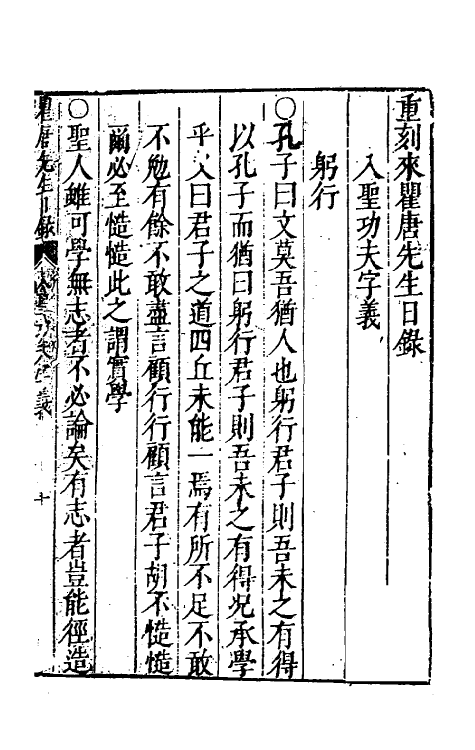 重刻來瞿唐先生日錄
入聖功夫字義
躬行
○孔子曰文莫吾猶人也躬行君子則吾未之有得
以孔子而猶曰躬行君子則吾未之有得况承學
乎又曰君子之道四丘未能一焉有所不足不敢
不勉有餘不敢盡言顧行行顧言君子胡不慥慥
爾必至慥慥此之謂實學
○聖人雖可學無志者不必論矣有志者豈能徑造
瞿唐先生日錄